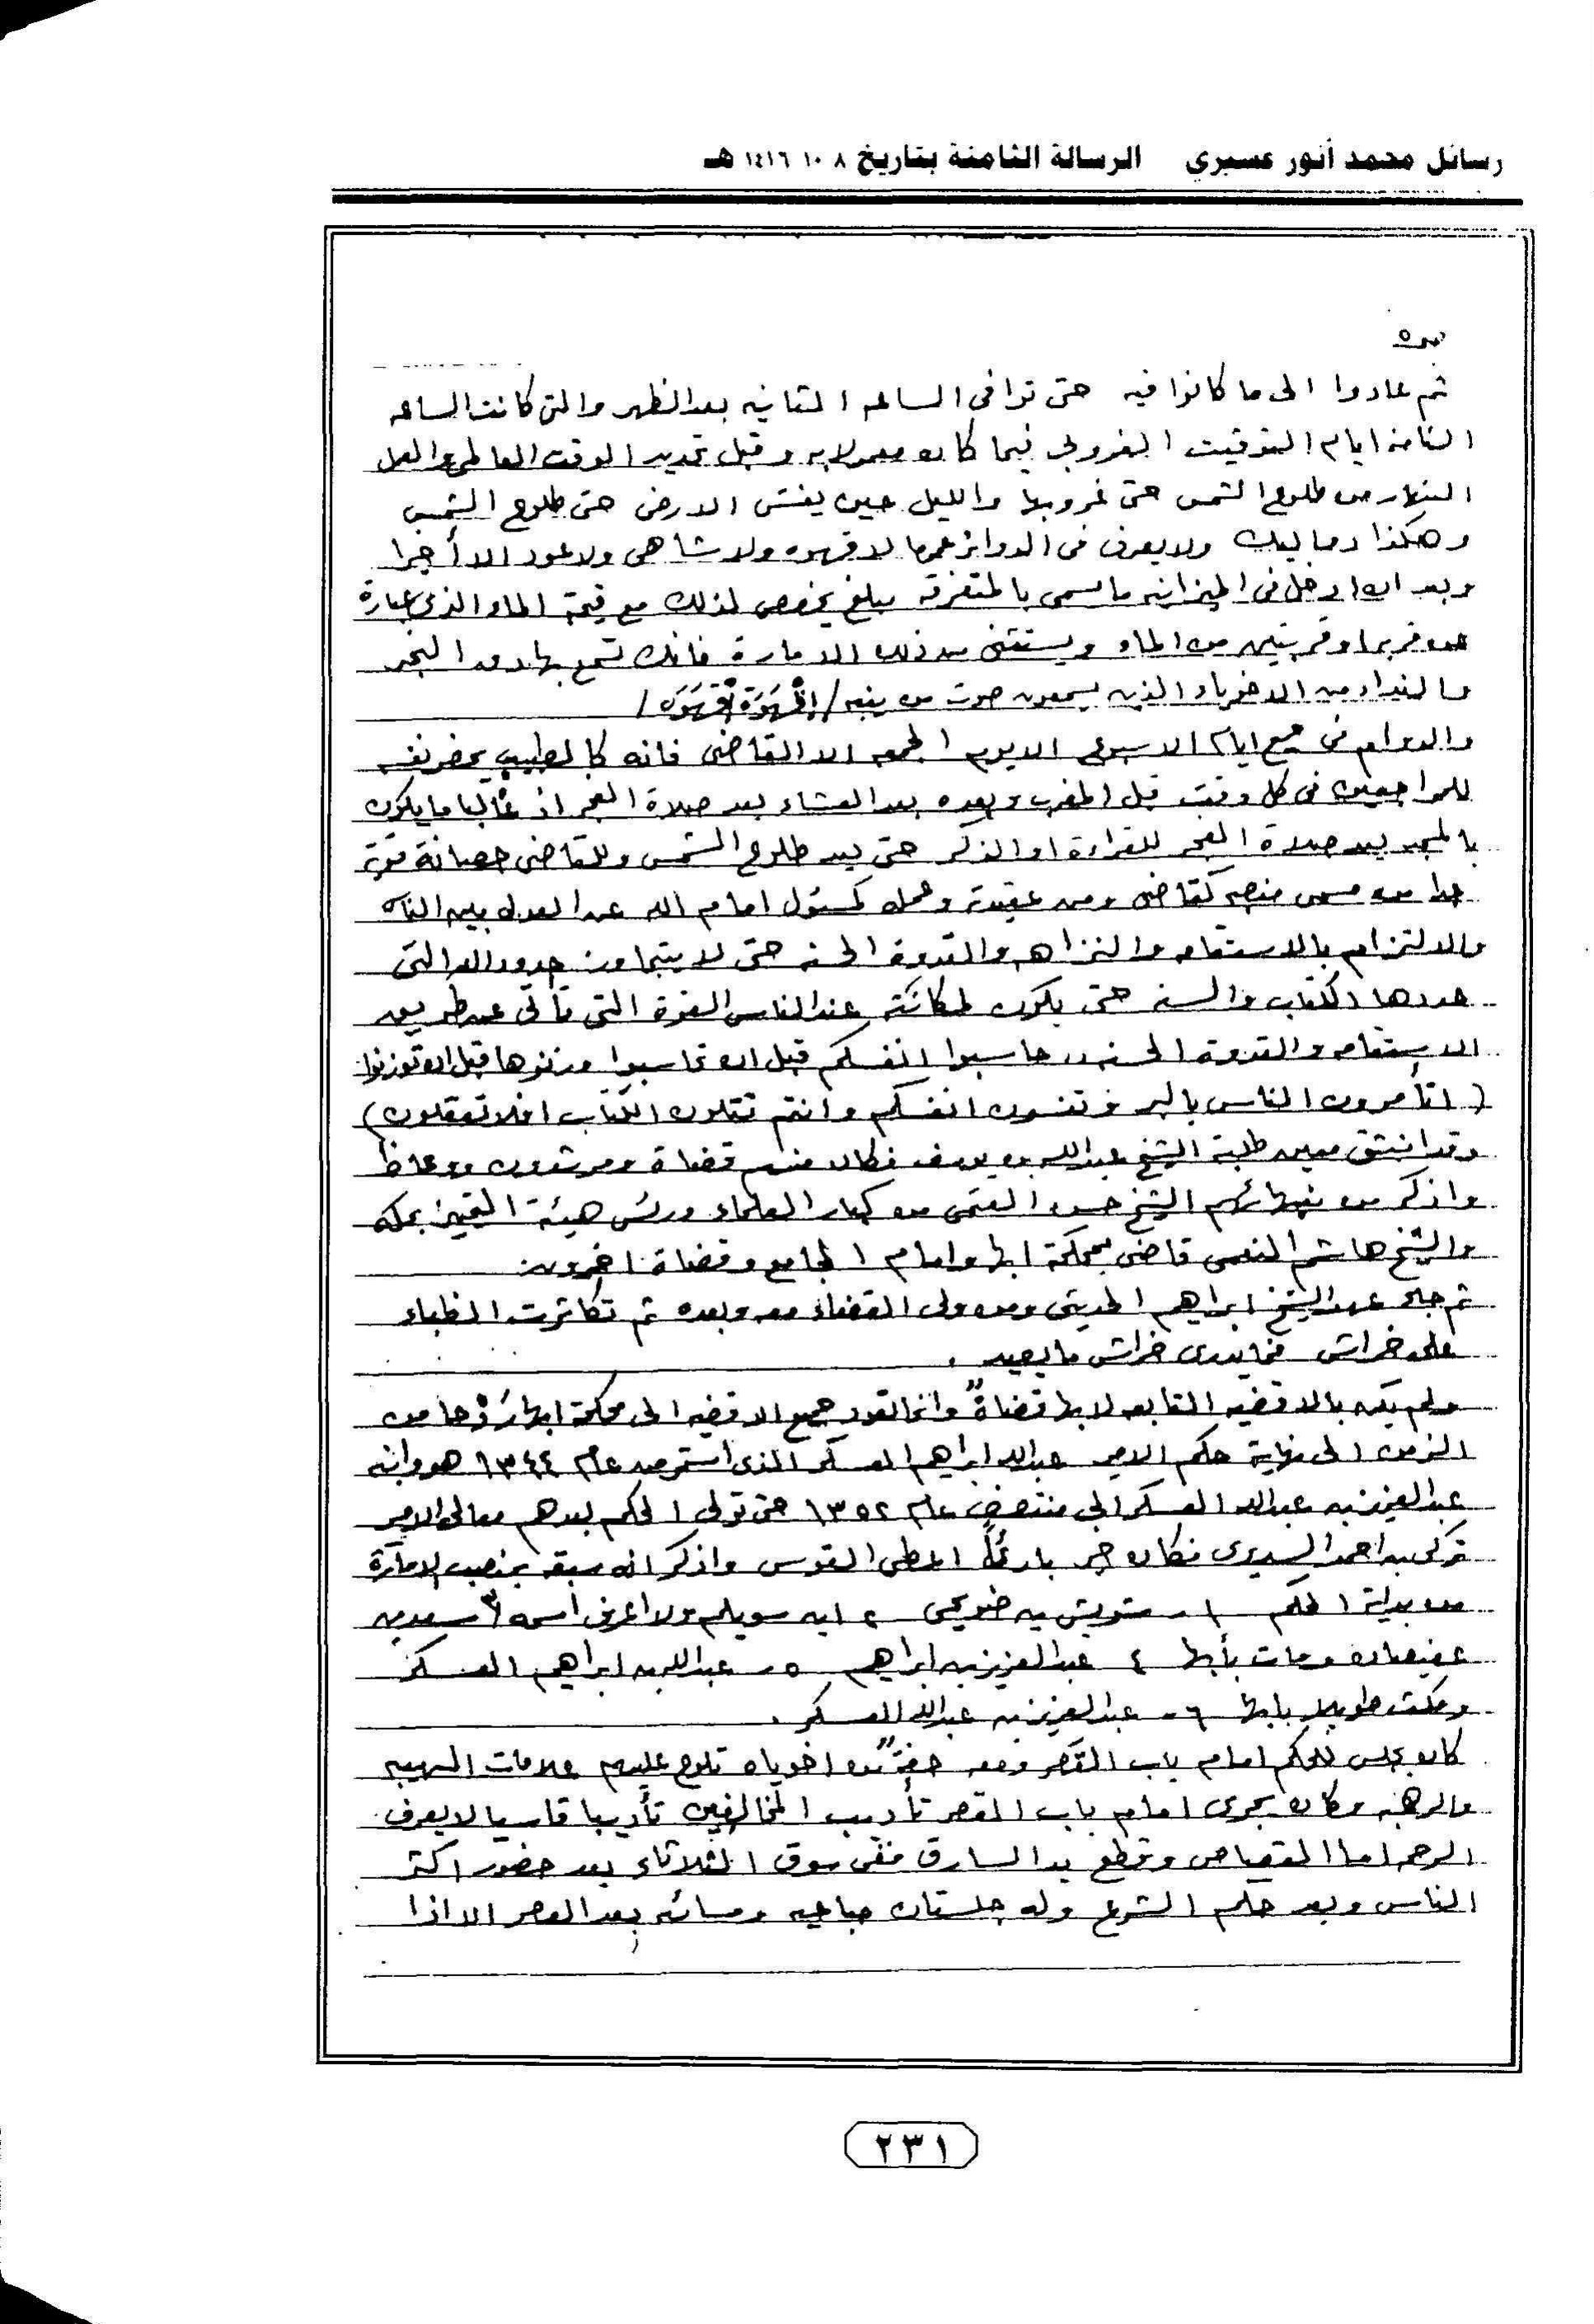 رسائل محمد أنور عسيري الرسالة الثامنة بتاريخ ٨ ١٠ ١٤١٦ هـ
ثم عادوا الى ما كانوا فيه حتى توافى الساعه الثانيه بعد الظهر والتى كانت الساعه
الثامنه ايام التوقيت الغروبى فيما كان معمولا به وقبل تحديد الوقت العالمى والعمل
النهار من طلوع الشمس حتى غروبها والليل حين يغشى الارض حتى طلوع الشمس
وهكذا دماليك ولا يعرف فى الدوائر عموما لا قهوه ولا شاهى ولا عود الا أخيرا
وبعد ان ادخل فى الميزانيه ما يسمى بالمتفرقه مبلغ يخصص لذلك مع قيمة الماء الذى عبارة
عن قربه او قربتين من الماء ويستثنى من ذلك الامارة فانك تسمع بها دق النجر
والنداء من الاخوياء الذين يسمعون صوت من ينبه / إقْهَوَة إقْهَوَه /
والدوام فى جميع ايام الاسبوع الا يوم الجمعه الا القاضى فانه كالطبيب يحضر نفسه
للمراجعين فى كل وقت قبل المغرب وبعده بعد العشاء بعد صلاة الفجر اذ غالبا ما يكون
بالمسجد بعد صلاة الفجر للقراءة او الذكر حتى بعد طلوع الشمس وللقاضى حصانة قويه
جدا من مسمى منصبه كقاضى ومن عقيدته وعمله كمسئول امام الله عن العدل بين الناس
والالتزام بالاستقامه والنزاهه والقدوة الحسنه حتى لا يتجاوز حدود الله التى
حددها الكتاب والسنه حتى يكون لمكانته عند الناس القوة التى تأتى عن طريق
الاستقامه والقدوة الحسنه ,, حاسبوا انفسكم قبل ان تحاسبوا وزنوها قبل ان توزنوا
( اتأمرون الناس بالبر وتنسون انفسكم وانتم تتلون الكتاب افلا تعقلون )
وقد انبثق معين طلبة الشيخ عبدالله بن يوسف فكان منهم قضاة ومرشدون ووعاظ
واذكر من نبهائهم الشيخ حسن العتمى من كبار العلماء ورئس هيئة التمييز بمكه
والشيخ هاشم النعمى قاضى بمحكمة ابها وامام الجامع وقضاة اخرون
ثم جاء عهد الشيخ ابراهيم الحديثى ومن ولى القضاء معه وبعده ثم تكاثرت الظباء
على خراش فما يدرى خراش ما يصيد .
ولم يكن بالاقضيه التابعه لابها قضاةً وانما تعود جميع الاقضيه الى محكمة ابها ردْحا من
الزمن الى نهاية حكم الامير عبدالله ابراهيم العسكر الذى استمر من عام ١٣٤٤ هو وابنه
عبدالعزيز بن عبدالله العسكر الى منتصف عام ١٣٥٢ حتى تولى الحكم بعدهم معالى الامير
تركى بن احمد السديرى فكان خير بارئًا اعطى القوس واذكر انه سبقه بمنصب الامارة
من بداية الحكم ١- شويش بن ضويحى ٢ ابن سويلم ولا اعرف اسمه ٣ سعد بن
عفيصان ومات بأبها ٤ عبدالعزيز بن ابراهيم ٥- عبدالله بن ابراهيم العسكر
ومكث طويلا بابها ٦- عبدالعزيز بن عبدالله العسكر .
كان يجلس للحكم امام باب القصر ومعه من اخوياه تلوح عليهم علامات الهيبه
والرهبه وكان يجرى امام باب القصر تأديب المخالفين تأديبا قاسيا لا يعرف
الرحمه اما القصاص وقطع يد السارق ففى سوق الثلاثاء بعد حضور اكثر
الناس وبعد حكم الشرع وله جلستان صباحيه ومسائه بعد العصر الا اذا
٢٣١